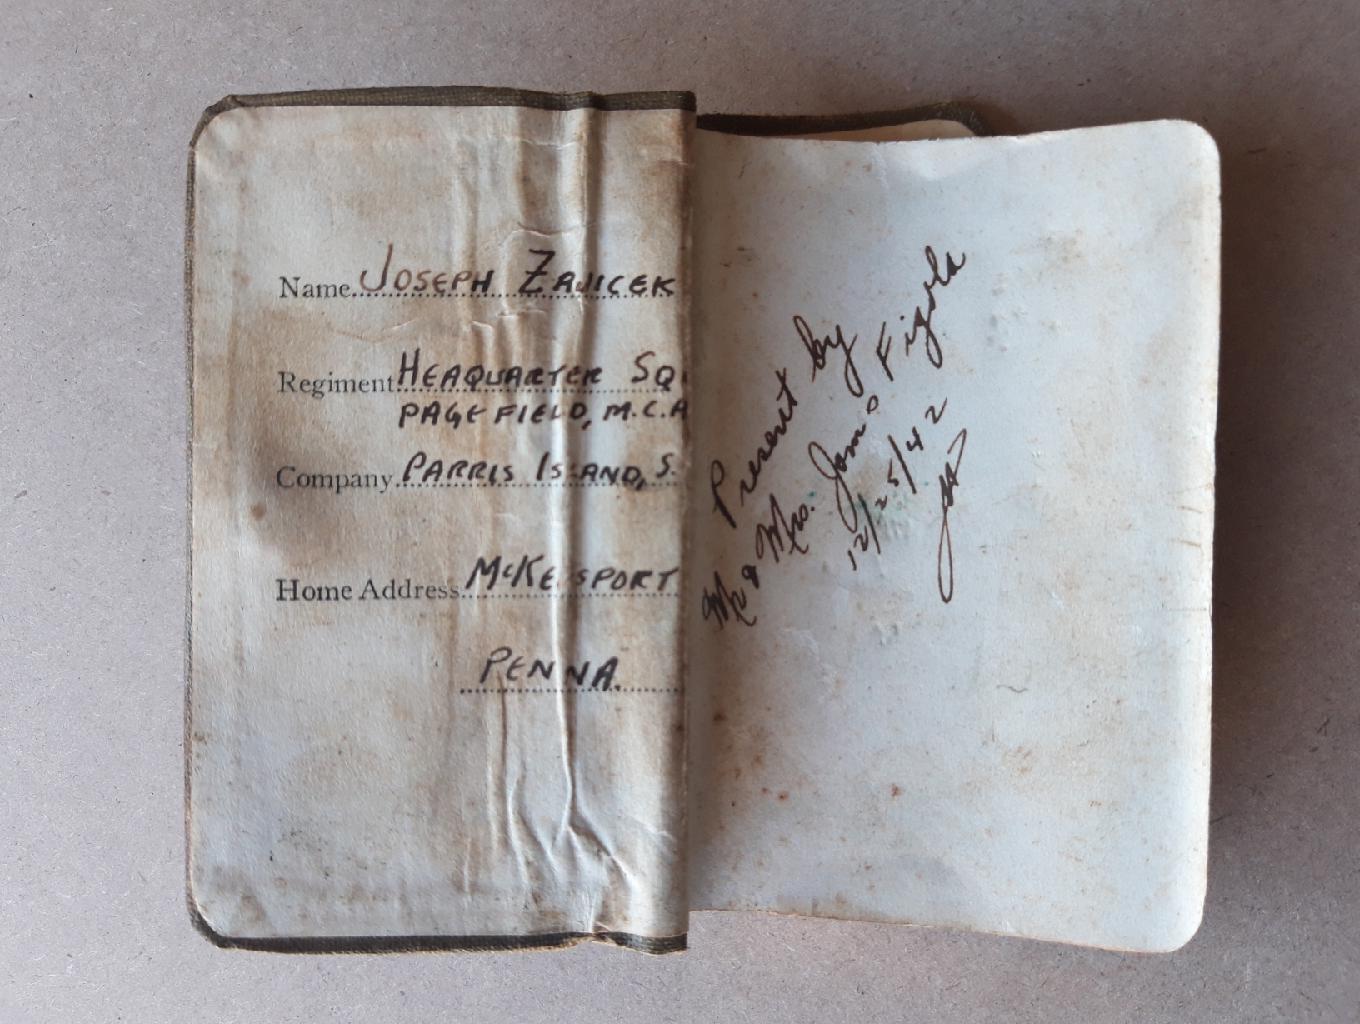 Name JOSEPH ZAJICEK
Regiment HEAQUARTER SQ
PAGE FIELD, M.C.A
Company PARRIS ISLAND, S.
Home Address McKEESPORT
PENNA.
Present by
Mr & Mrs. Jam⁠s Figola
12/25/42